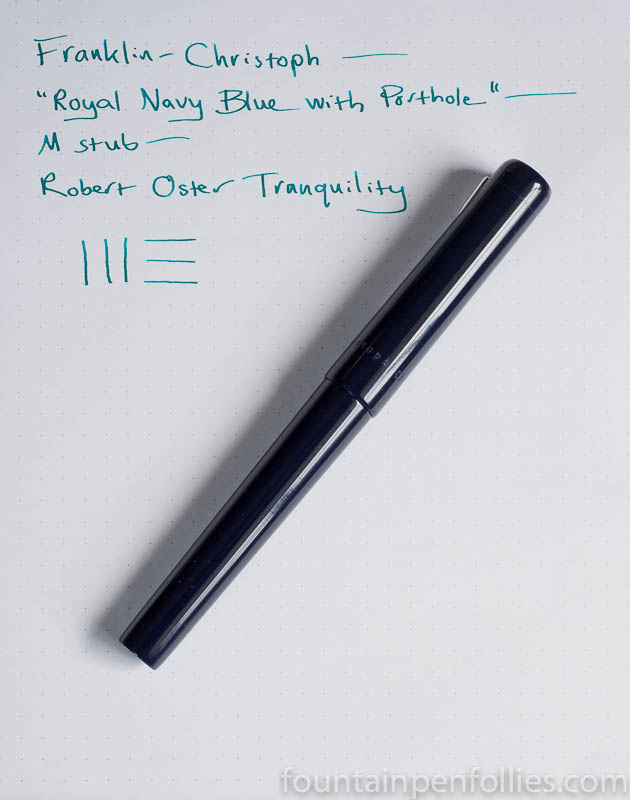 Franklin-Christoph
"Royal Navy Blue with Porthole"
M stub
Robert Oster Tranquility
fountainpenfollies.com